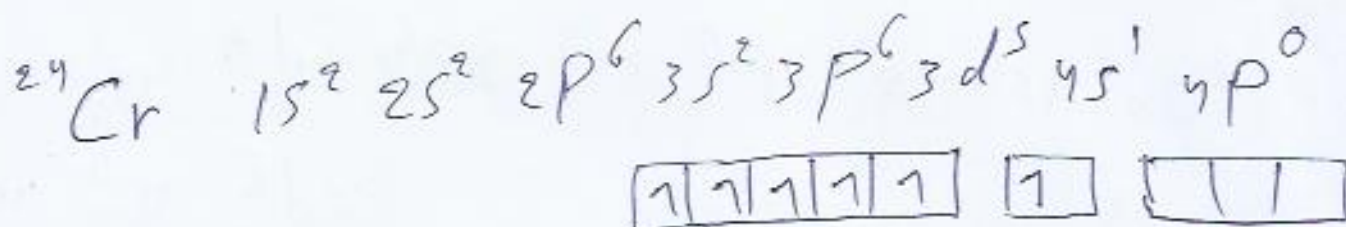 ²⁴Cr 1s² 2s² 2p⁶ 3s² 3p⁶ 3d⁵ 4s¹ 4p⁰
1 1 1 1 1 1